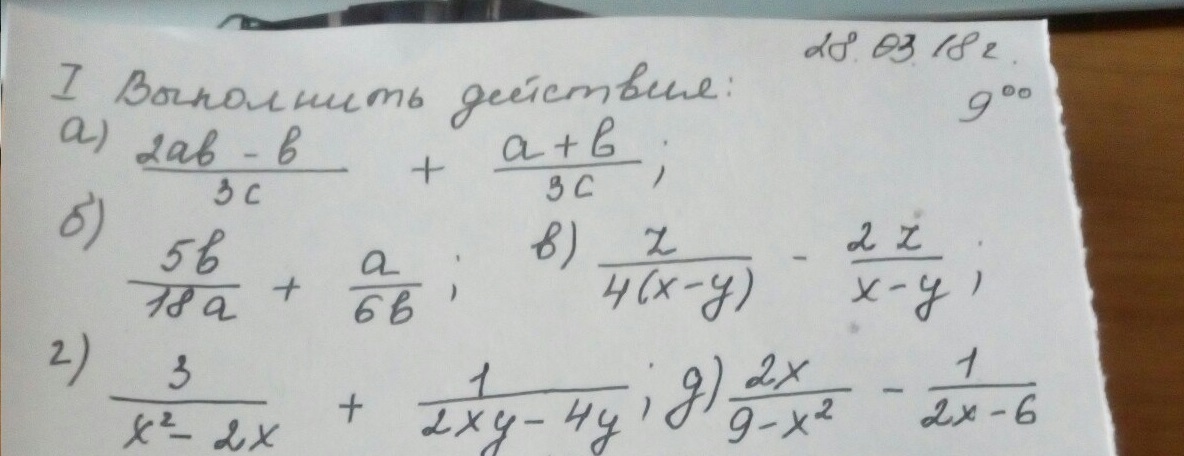 28.03.18 г.
I Выполнить действия: 9⁰⁰
а) (2ab - b)/(3c) + (a + b)/(3c);
б) 5b/(18a) + a/(6b); в) z/(4(x-y)) - 2z/(x-y);
г) 3/(x² - 2x) + 1/(2xy - 4y); д) 2x/(9-x²) - 1/(2x-6)